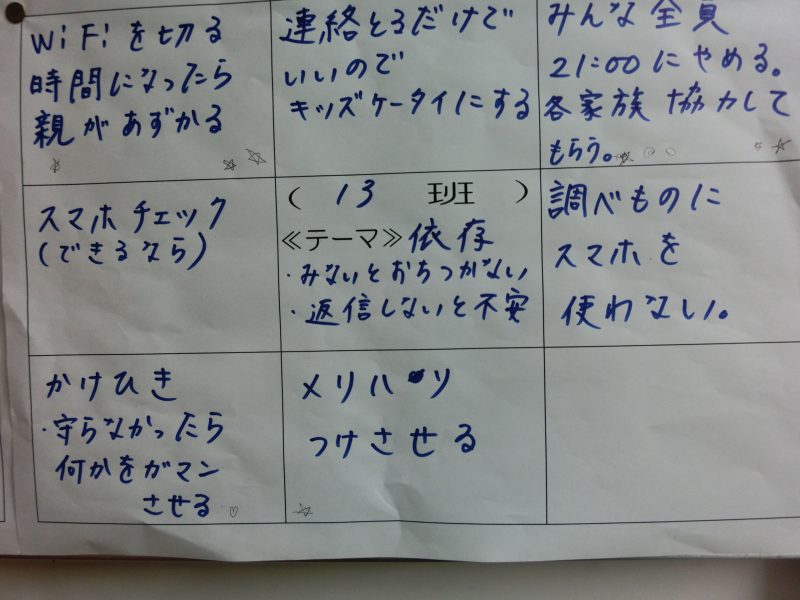 WiFiを切る
時間になったら
親があずかる
連絡とるだけで
いいので
キッズケータイにする
みんな全員
21:00にやめる。
各家族 協力して
もらう。
スマホチェック
(できるなら)
( 13 班 )
≪テーマ≫依存
・みないとおちつかない
・返信しないと不安
調べものに
スマホを
使わない。
かけひき
・守らなかったら
何かをガマン
させる
メリハリ
つけさせる